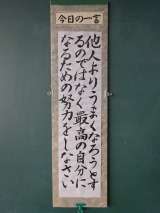 今日の一言
他人よりうまくなろうとす
るのではなく最高の自分に
なるための努力をしなさい